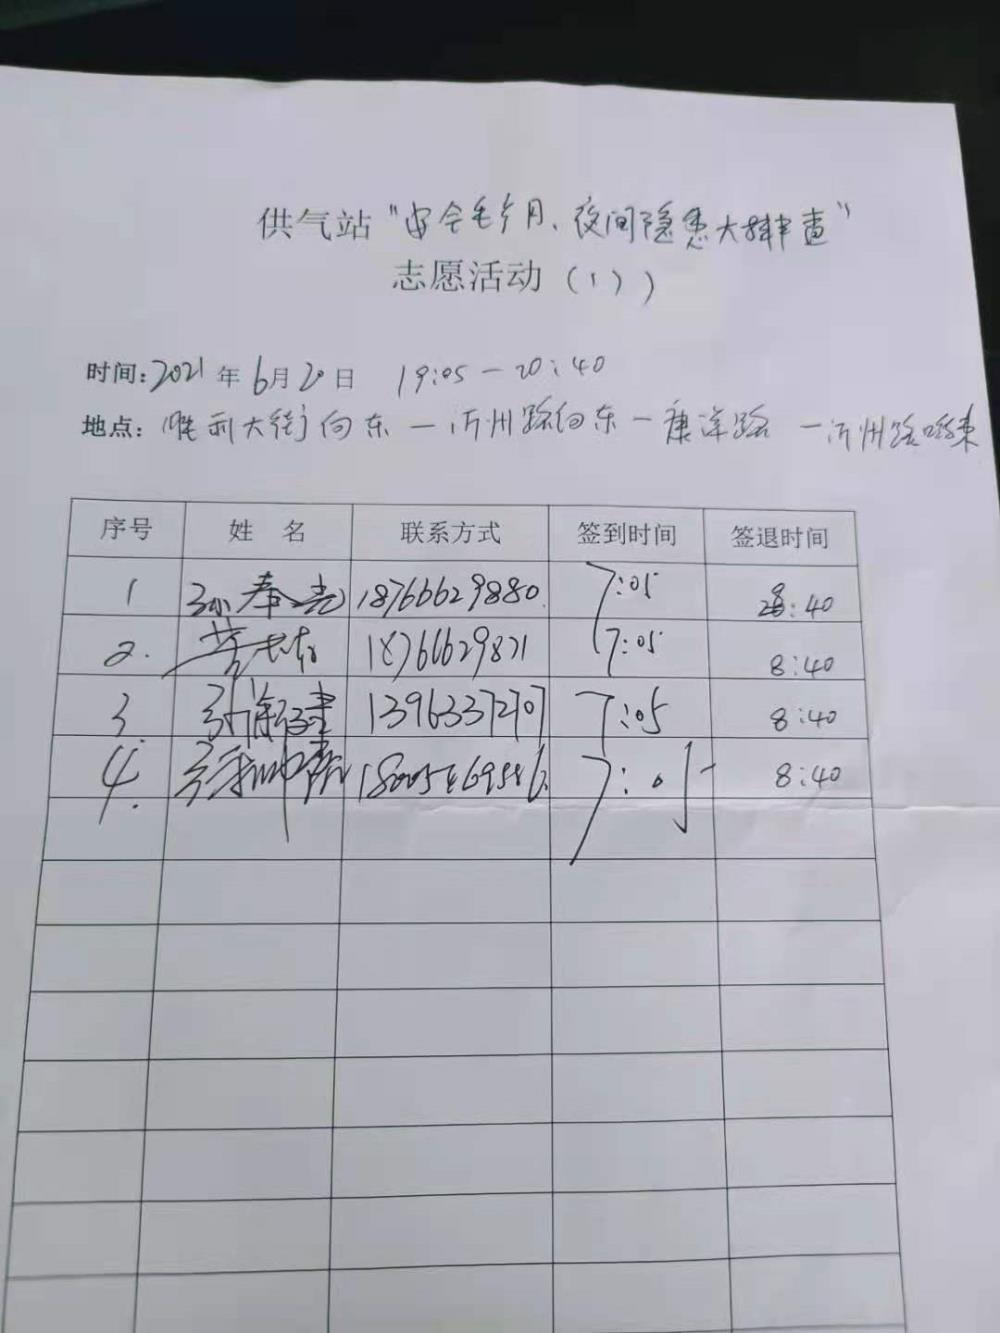 供气站“安全生产月、夜间隐患大排查”
志愿活动（1））
时间：2021年6月20日 19:05—20:40
地点：胜利大街向东—沂州路向东—康洋路—沂州路结束
序号 姓 名 联系方式 签到时间 签退时间
1 孙奉 18766629880 7:05 8:40
2. 18766629821 7:05 8:40
3 13963372707 7:05 8:40
4. 7:05 8:40